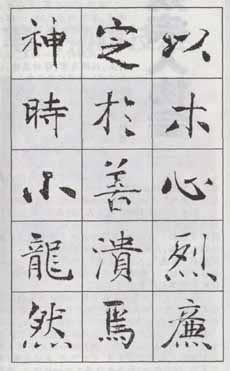 以木心烈廉
定於善潰焉
神時小龍然